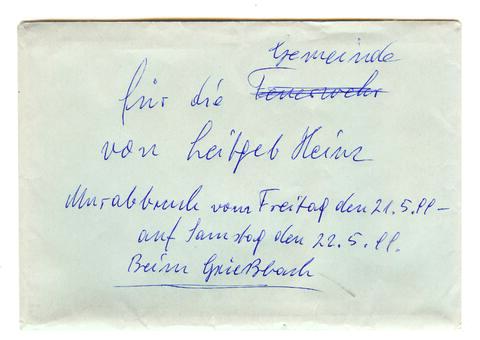 Gemeinde
für die Feuerwehr
von Leitgeb Heinz
Murabbruch vom Freitag den 21.5.99 –
auf Samstag den 22.5.99.
Beim Grießbach